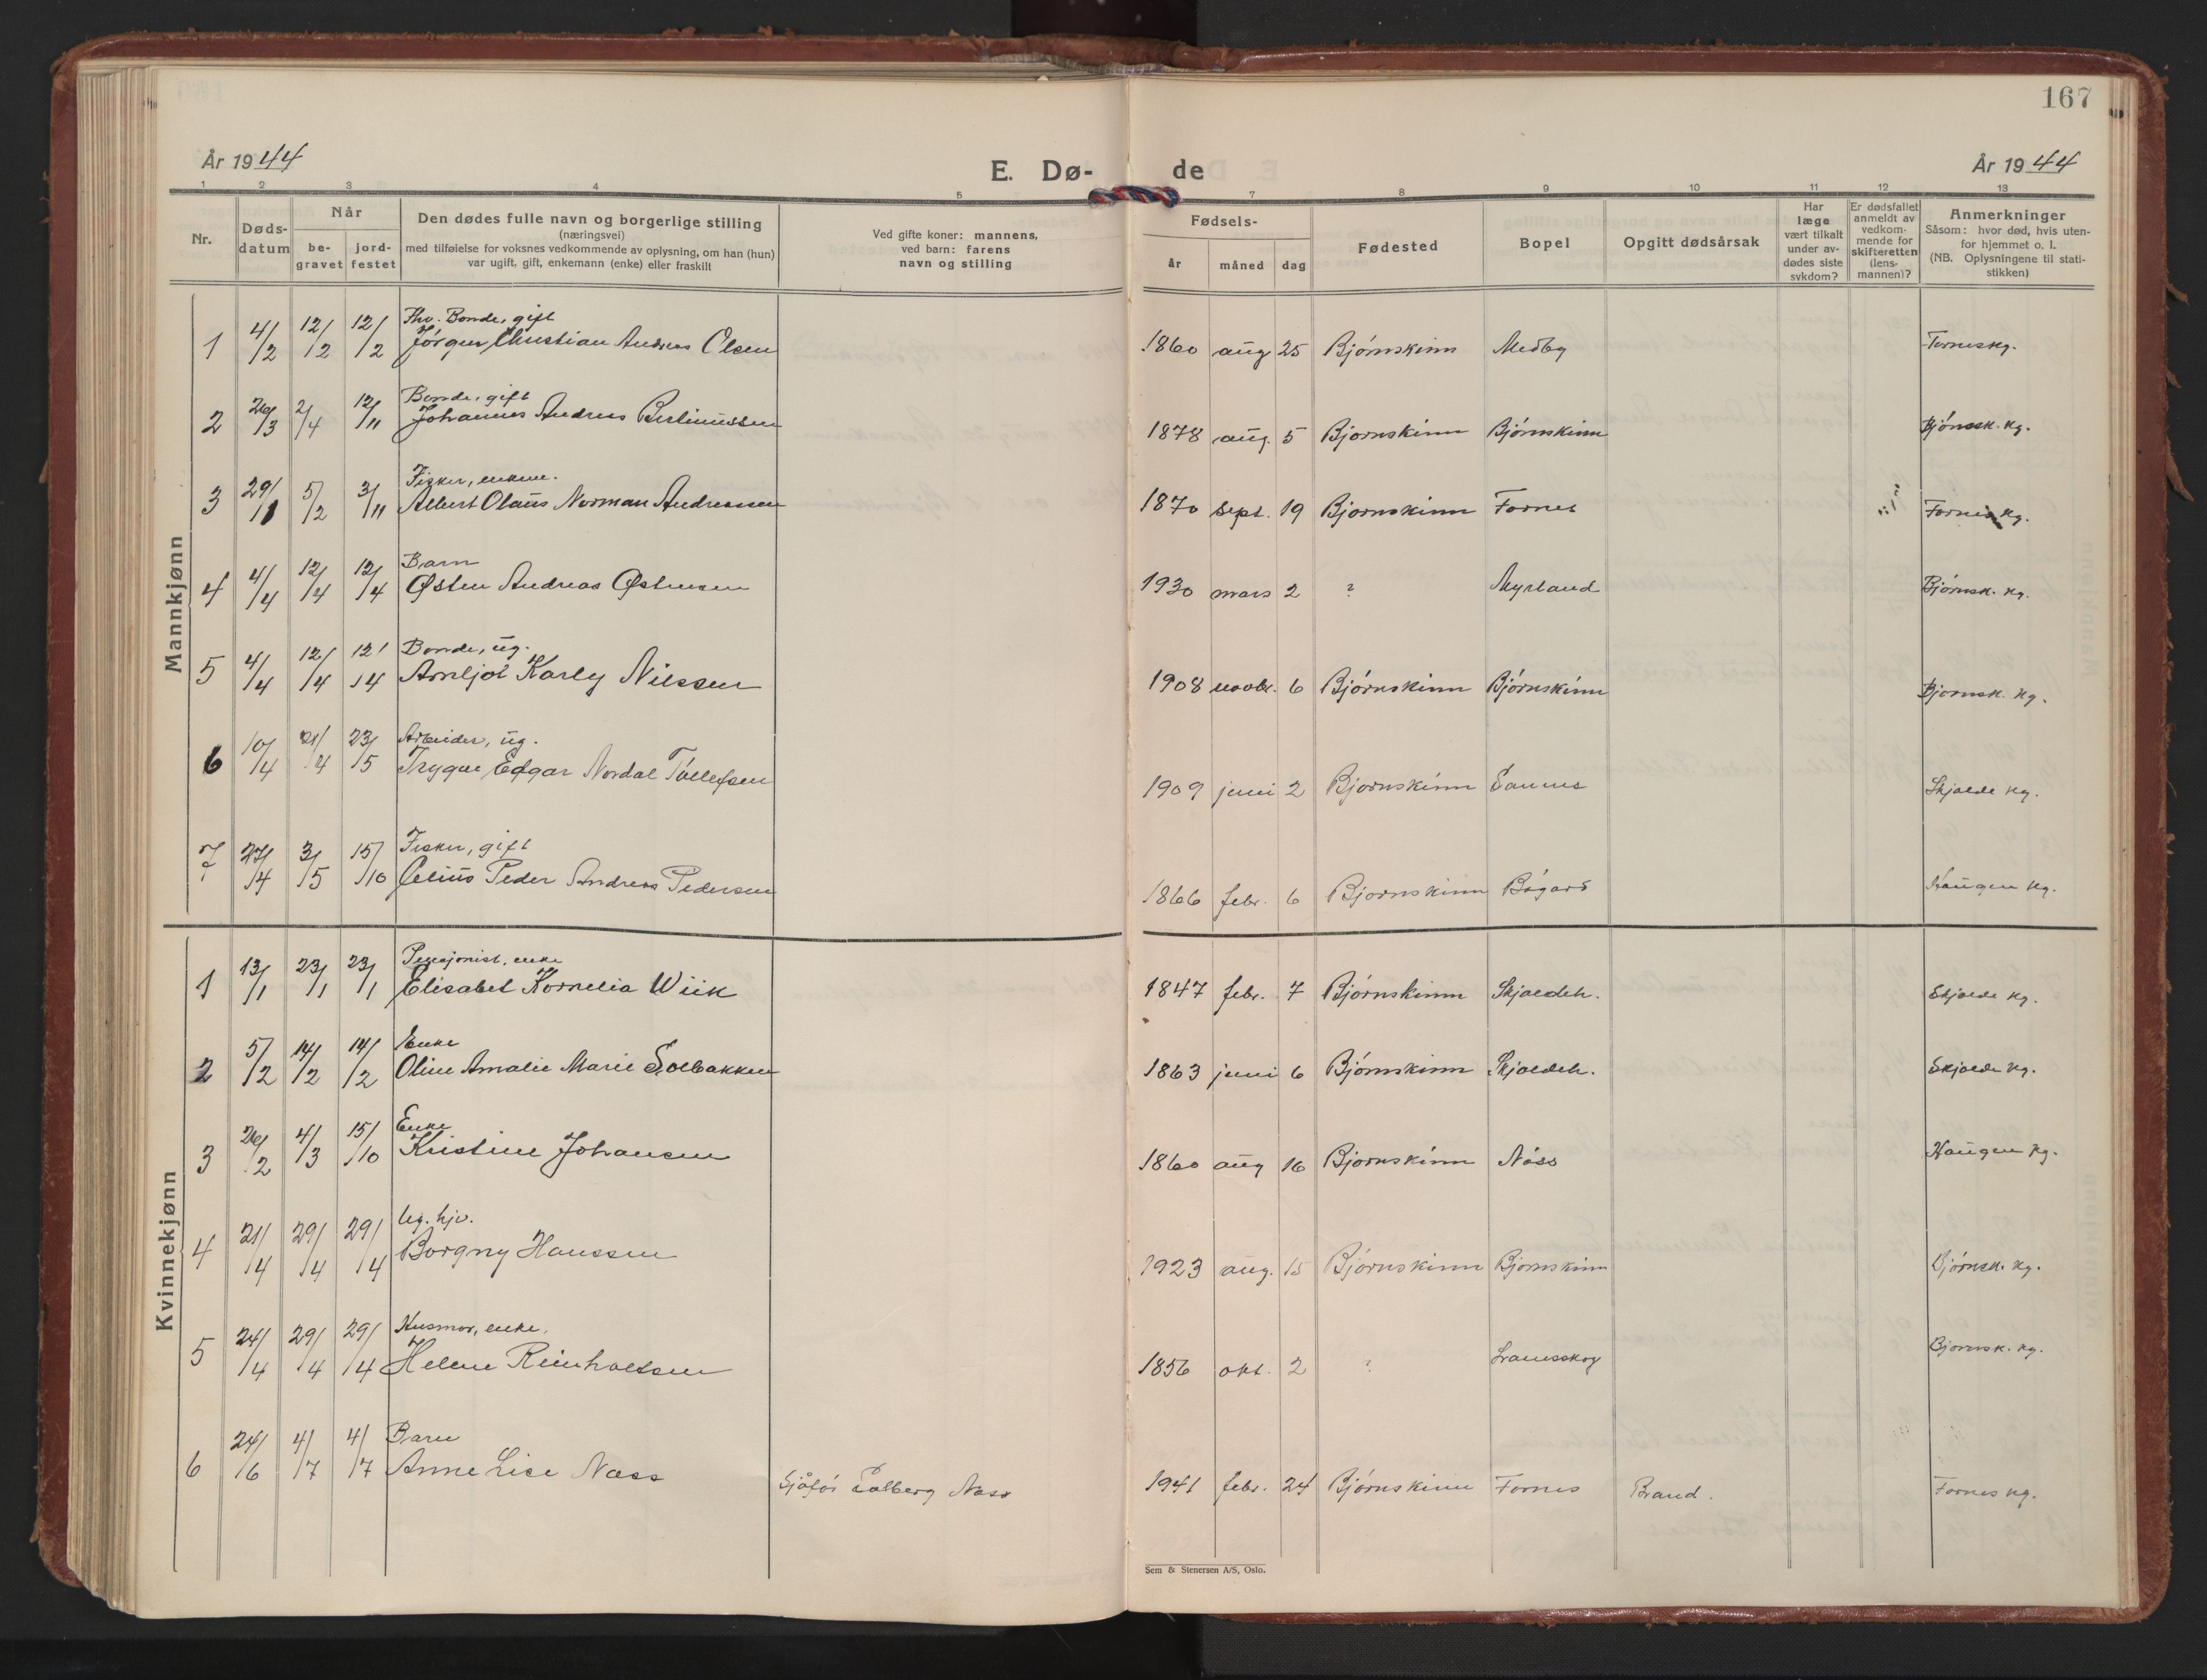 167
År 1944
E. Dø- de
År 1944
1 2 3 4 5 7 8 9 10 11 12 13
Nr.
Døds-datum
Når
be-gravet
jord-festet
Den dødes fulle navn og borgerlige stilling
(næringsvei)
med tilføielse for voksnes vedkommende av oplysning, om han (hun)
var ugift, gift, enkemann (enke) eller fraskilt
Ved gifte koner: mannens,
ved barn: farens
navn og stilling
Fødsels-
år måned dag
Fødested
Bopel
Opgitt dødsårsak
Har
læge
vært tilkalt
under av-
dødes siste
sykdom?
Er dødsfallet
anmeldt av
vedkom-
mende for
skifteretten
(lens-
mannen)?
Anmerkninger
Såsom: hvor død, hvis uten-
for hjemmet o. l.
(NB. Oplysningene til stati-
stikken)
Mannkjønn
Fhv. Bonde, gift
1 4/2 12/2 12/2 Jörgen Christian Andreas Olsen 1860 aug 25 Björnskinn Medby Forneskg.
Bonde, gift
2 26/3 2/4 12/11 Johannes Andreas Bertinussen 1878 aug. 5 Bjornskinn Björnskinn Björnsk. kg.
Fisker, enkem.
3 29/1 5/2 3/11 Albert Olaus Norman Andreassen 1870 sept. 19 Bjornskinn Fornes Fornes kg.
Barn
4 4/4 12/4 12/4 Østen Andreas Østensen 1930 mars 2 ? Myrland Björnsk. kg.
Bonde, ug.
5 4/4 12/4 12/4 Arnljot Karly Nilssen 1908 novbr. 6 Björnskinn Björnskinn Bjornsk. kg.
Arbeider, ug.
6 10/4 21/4 23/5 Trygve Edgar Nordal Tollefsen 1909 juni 2 Bjornskinn Sannes Skjolde kg.
Fisker, gift
7 27/4 3/5 15/10 Peder Andreas Pedersen 1866 febr. 6 Bjornskinn Bögard Haugen kg.
Kvinnekjønn
Pensjonist, enke
1 13/1 23/1 23/1 Elisabet Kornelia Wiik 1847 febr. 7 Björnskinn Skjoldeh. Skjolde kg.
Enke
2 5/2 14/2 14/2 Oline Amalie Marie Solbakken 1863 juni 6 Björnskinn Skjoldeh. Skjolde kg.
Enke
3 26/2 4/3 15/10 Kristine Johansen 1860 aug 16 Bjornskinn Nöss Haugen kg.
leg. hjv.
4 21/4 29/4 29/4 Borgny Hanssen 1923 aug. 15 Björnskinn Bjornskinn Björnsk. kg.
Husmor, enke.
5 24/4 29/4 29/4 Helene Reinholtsen 1856 okt. 2 ? Bjornsk. kg.
Barn
6 24/6 4/7 4/7 Anne Lise Næss Sjåför Solberg Næss 1941 febr. 24 Björnskinn Fornes Brand. Fornes kg.
Sem & Stenersen A/S, Oslo.